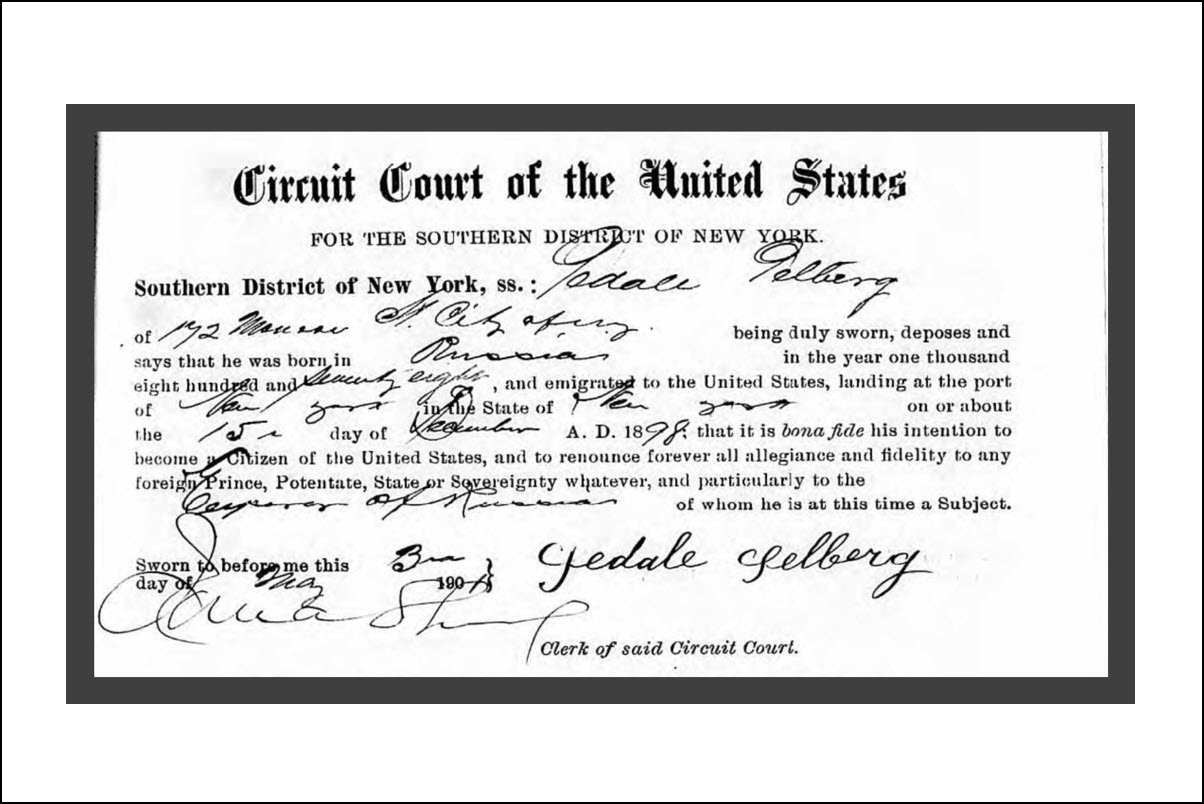 Circuit Court of the United States
FOR THE SOUTHERN DISTRICT OF NEW YORK.
Southern District of New York, ss.: Gedale Gelberg
of 172 Monroe St. City of N.Y. being duly sworn, deposes and
says that he was born in Russia in the year one thousand
eight hundred and seventy eight, and emigrated to the United States, landing at the port
of New York in the State of New York on or about
the 15 day of December A. D. 1898; that it is bona fide his intention to
become a Citizen of the United States, and to renounce forever all allegiance and fidelity to any
foreign Prince, Potentate, State or Sovereignty whatever, and particularly to the
Emperor of Russia of whom he is at this time a Subject.
Sworn to before me this 3rd
day of May 190
Gedale Gelberg
Clerk of said Circuit Court.